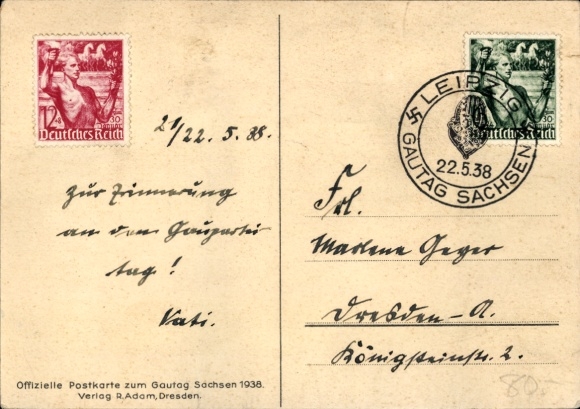 12 30 Januar
Deutsches Reich
30 Januar
Deutsches Reich
LEIPZIG
GAUTAG SACHSEN
22.5.38
21/22. 5. 38.
Zur Erinnerung
an den Gaupartei
tag!
Vati.
Frl.
Marlene Geyer
Dresden-A.
Königsteinstr. 2.
Offizielle Postkarte zum Gautag Sachsen 1938.
Verlag R. Adam, Dresden.
80.-